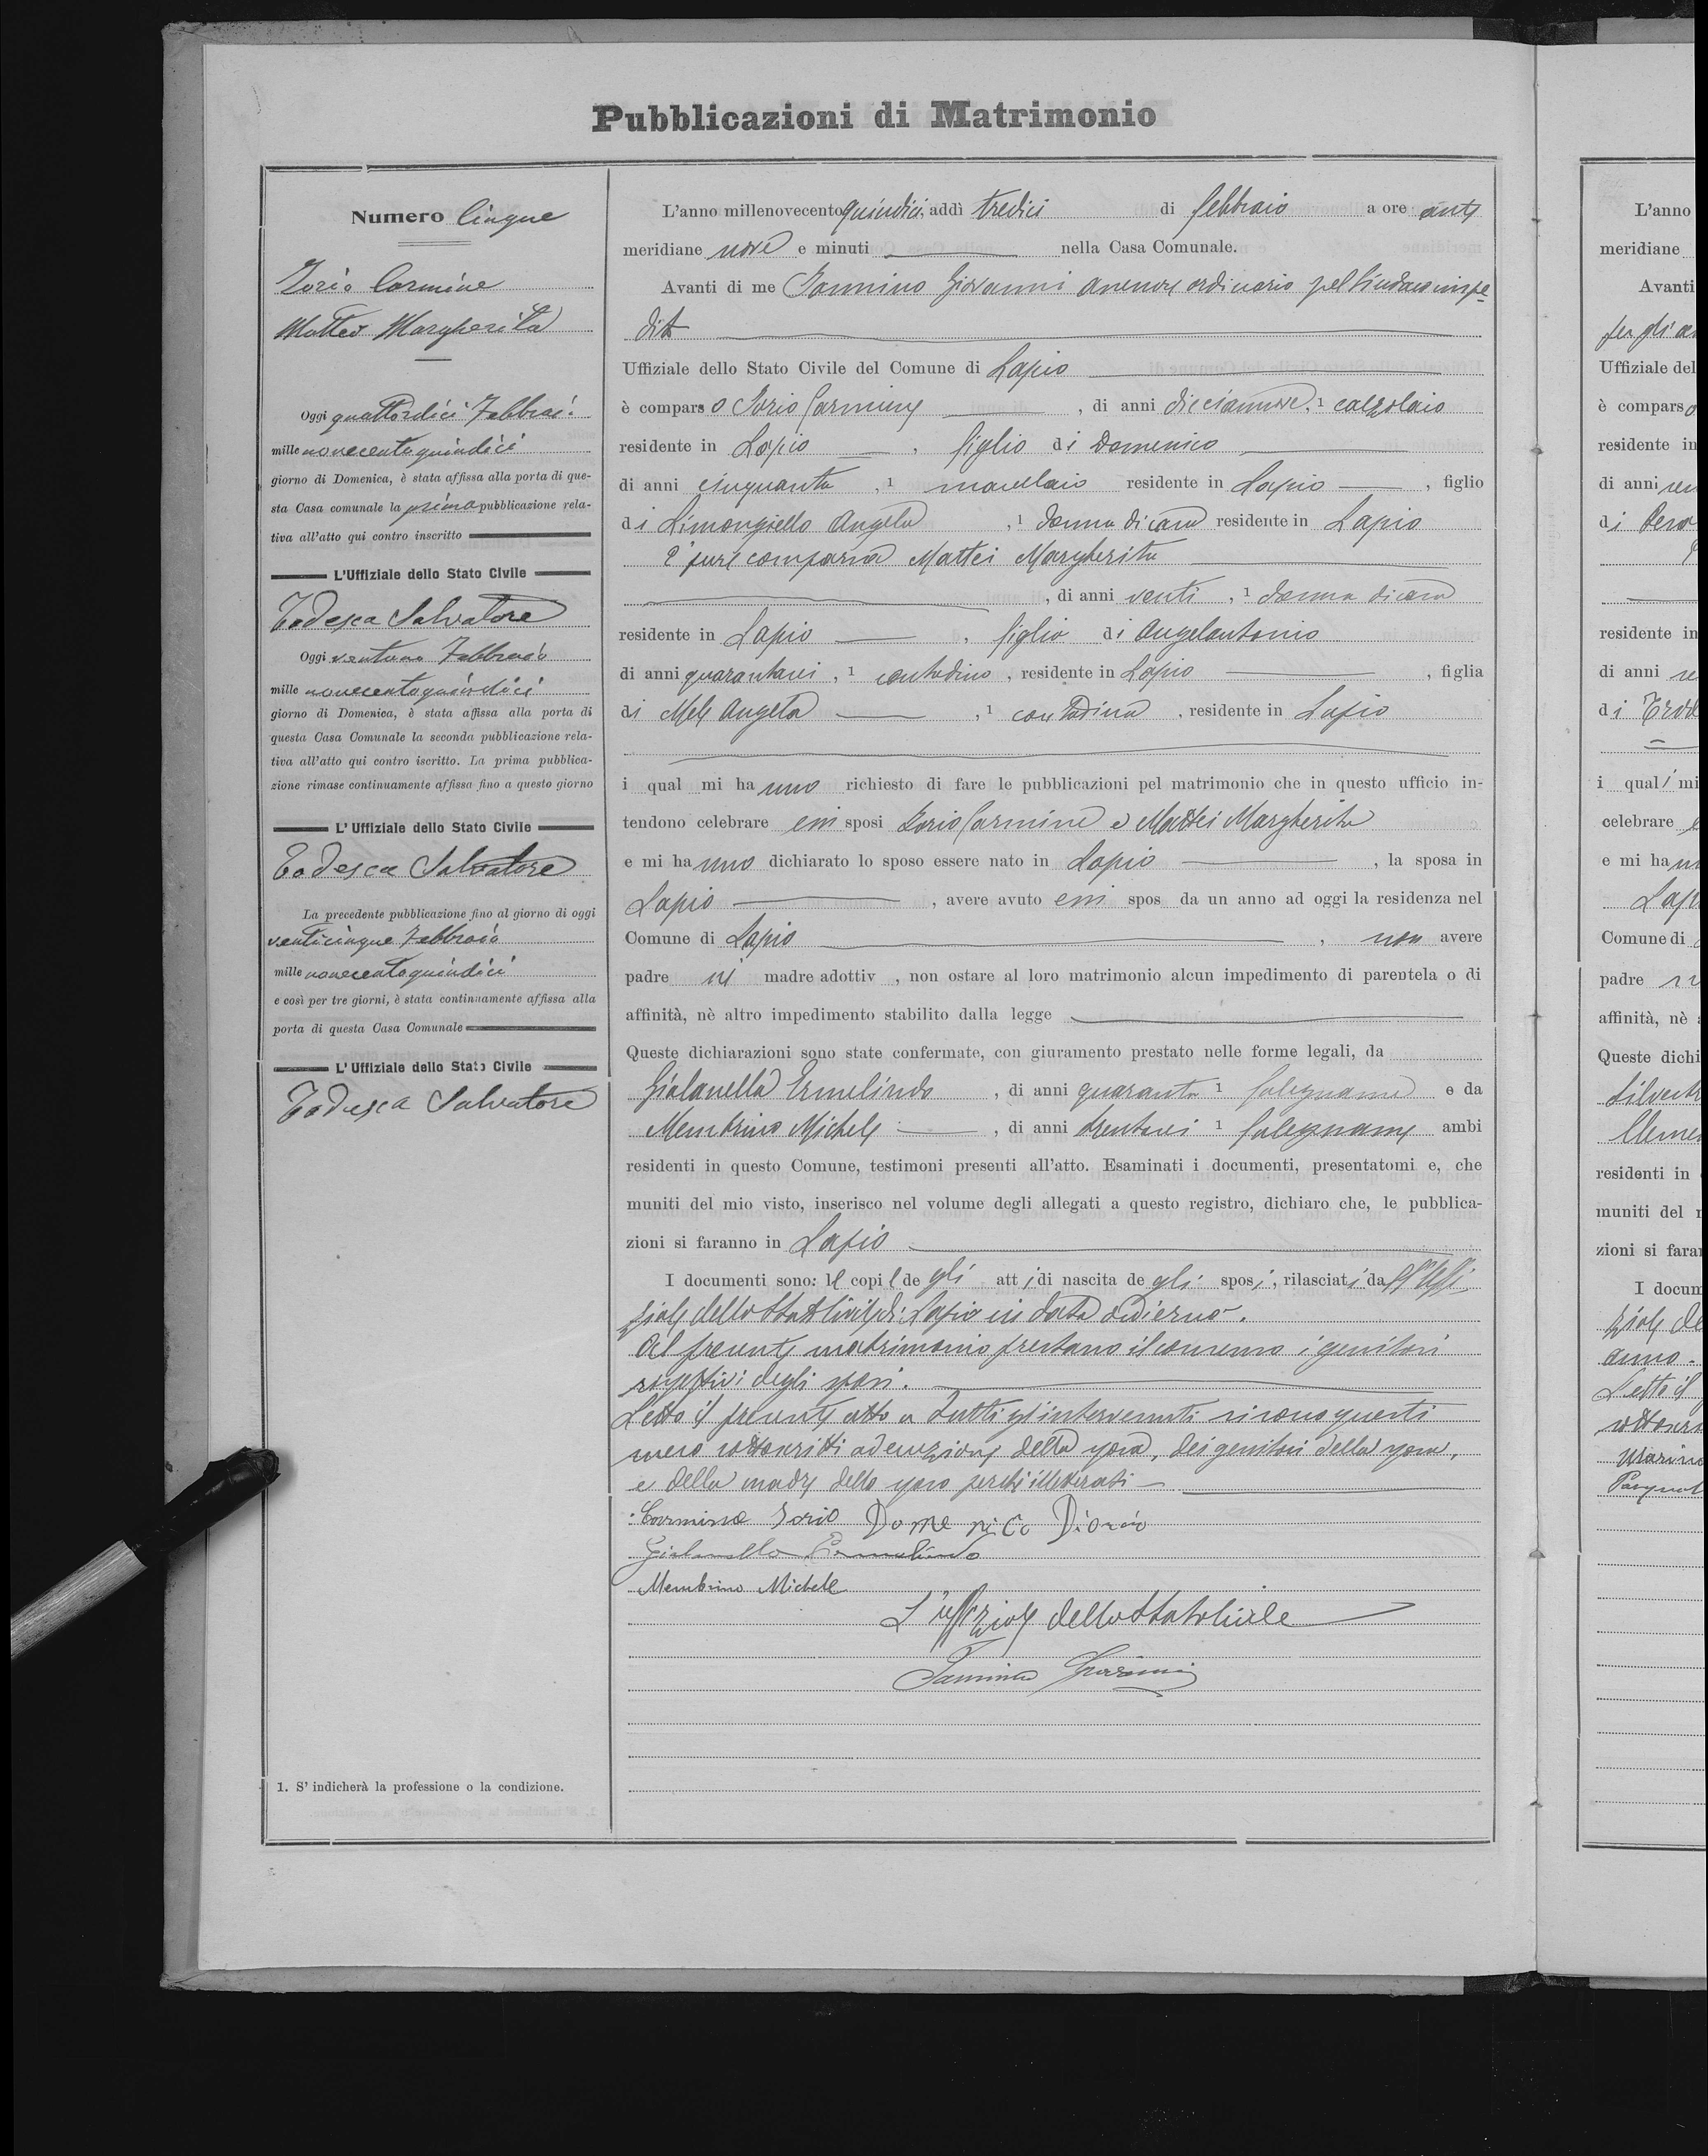 Pubblicazioni di Matrimonio
Numero Cinque
Iorio Carmine
Mattei Margherita
Oggi quattordici Febbraio
mille novecentoquindici
giorno di Domenica, è stata affissa alla porta di que-
sta Casa comunale la prima pubblicazione rela-
tiva all'atto qui contro inscritto
L'Uffiziale dello Stato Civile
Todesca Salvatore
Oggi ventuno Febbraio
mille novecentoquindici
giorno di Domenica, è stata affissa alla porta di
questa Casa Comunale la seconda pubblicazione rela-
tiva all'atto qui contro iscritto. La prima pubblica-
zione rimase continuamente affissa fino a questo giorno
L'Uffiziale dello Stato Civile
Todesca Salvatore
La precedente pubblicazione fino al giorno di oggi
venticinque Febbraio
mille novecentoquindici
e così per tre giorni, è stata continuamente affissa alla
porta di questa Casa Comunale
L'Uffiziale dello Stato Civile
Todesca Salvatore
1. S' indicherà la professione o la condizione.
L'anno millenovecentoquindici, addì tredici di febbraio a ore ante
meridiane nove e minuti nella Casa Comunale.
Avanti di me Iannino Giovanni Assessore ordinario pel Sindaco impe-
dito
Uffiziale dello Stato Civile del Comune di Lapio
è comparso Iorio Carmine, di anni diciannove, 1 calzolaio
residente in Lapio, figlio di Domenico
di anni cinquanta, 1 macellaio residente in Lapio, figlio
di Limongiello Angela, 1 donna di casa residente in Lapio
È pure comparsa Mattei Margherita
, di anni venti, 1 donna di casa
residente in Lapio, figlia di Angelantonio
di anni quarantasei, 1 contadino, residente in Lapio, figlia
di Mele Angela, 1 contadina, residente in Lapio
i qual mi hanno richiesto di fare le pubblicazioni pel matrimonio che in questo ufficio in-
tendono celebrare essi sposi Iorio Carmine e Mattei Margherita
e mi hanno dichiarato lo sposo essere nato in Lapio, la sposa in
Lapio, avere avuto essi spos da un anno ad oggi la residenza nel
Comune di Lapio, non avere
padre nè madre adottiv, non ostare al loro matrimonio alcun impedimento di parentela o di
affinità, nè altro impedimento stabilito dalla legge
Queste dichiarazioni sono state confermate, con giuramento prestato nelle forme legali, da
Giolanella Ermelindo, di anni quaranta 1 falegname e da
Membrino Michele, di anni trentasei 1 falegname ambi
residenti in questo Comune, testimoni presenti all'atto. Esaminati i documenti, presentatomi e, che
muniti del mio visto, inserisco nel volume degli allegati a questo registro, dichiaro che, le pubblica-
zioni si faranno in Lapio
I documenti sono: le copie degli atti di nascita degli sposi, rilasciati dall'Uffi
ziale dello Stato Civile di Lapio in data odierna.
Al presente matrimonio prestano il consenso i genitori
rispettivi degli sposi.
Letto il presente atto a tutti gl'intervenuti si sono questi
meco sottoscritti ad eccezione della sposa, dei genitori della sposa,
e della madre dello sposo perchè illetterati
Carmine Iorio Domenico Diorio
Giolanella Ermelindo
Membrino Michele
L'uffiziale dello Stato Civile
Iannino Giovanni
L'anno
meridiane
Avanti
Uffiziale del
è comparso
residente in
di anni
di
residente in
di anni
di
i quali mi
celebrare
e mi ha
Comune di
padre
affinità, nè
Queste dichi
residenti in
muniti del
zioni si fara
I docum
ziale de
anno.
Letto il